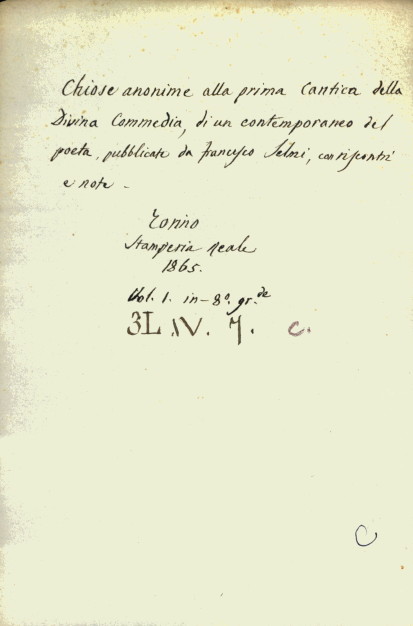 Chiose anonime alla prima Cantica della
Divina Commedia, di un contemporaneo del
poeta, pubblicate da Francesco Selmi, con riscontri
e note -
Torino
Stamperia Reale
1865.
Vol. 1. in-8º. gr.de
3L .IV. 7. C.
C